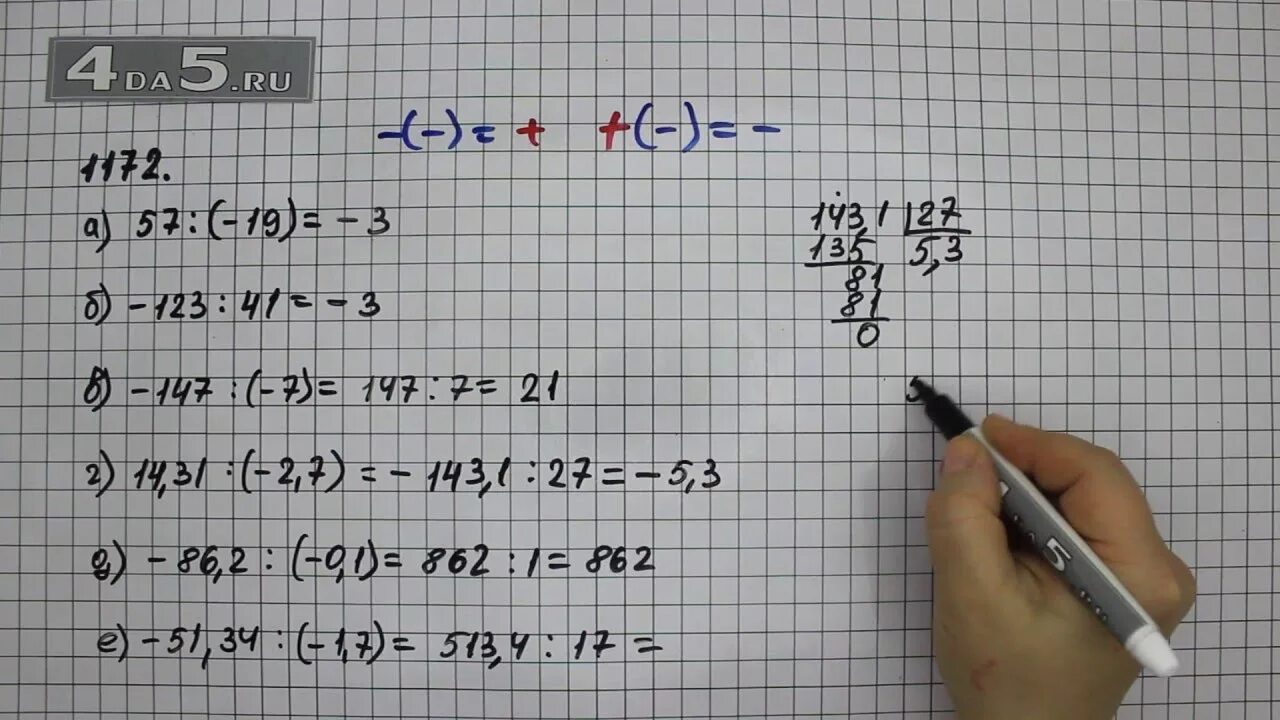 4DA5.RU
-(-)= + +(-)= -
1172.
а) 57:(-19)= -3
б) -123:41= -3
в) -147:(-7)= 147:7= 21
г) 14,31:(-2,7)= -143,1:27= -5,3
д) -86,2:(-0,1)= 862:1= 862
е) -51,34:(-1,7)= 513,4:17=
143,1 27
135 5,3
81
81
0
5